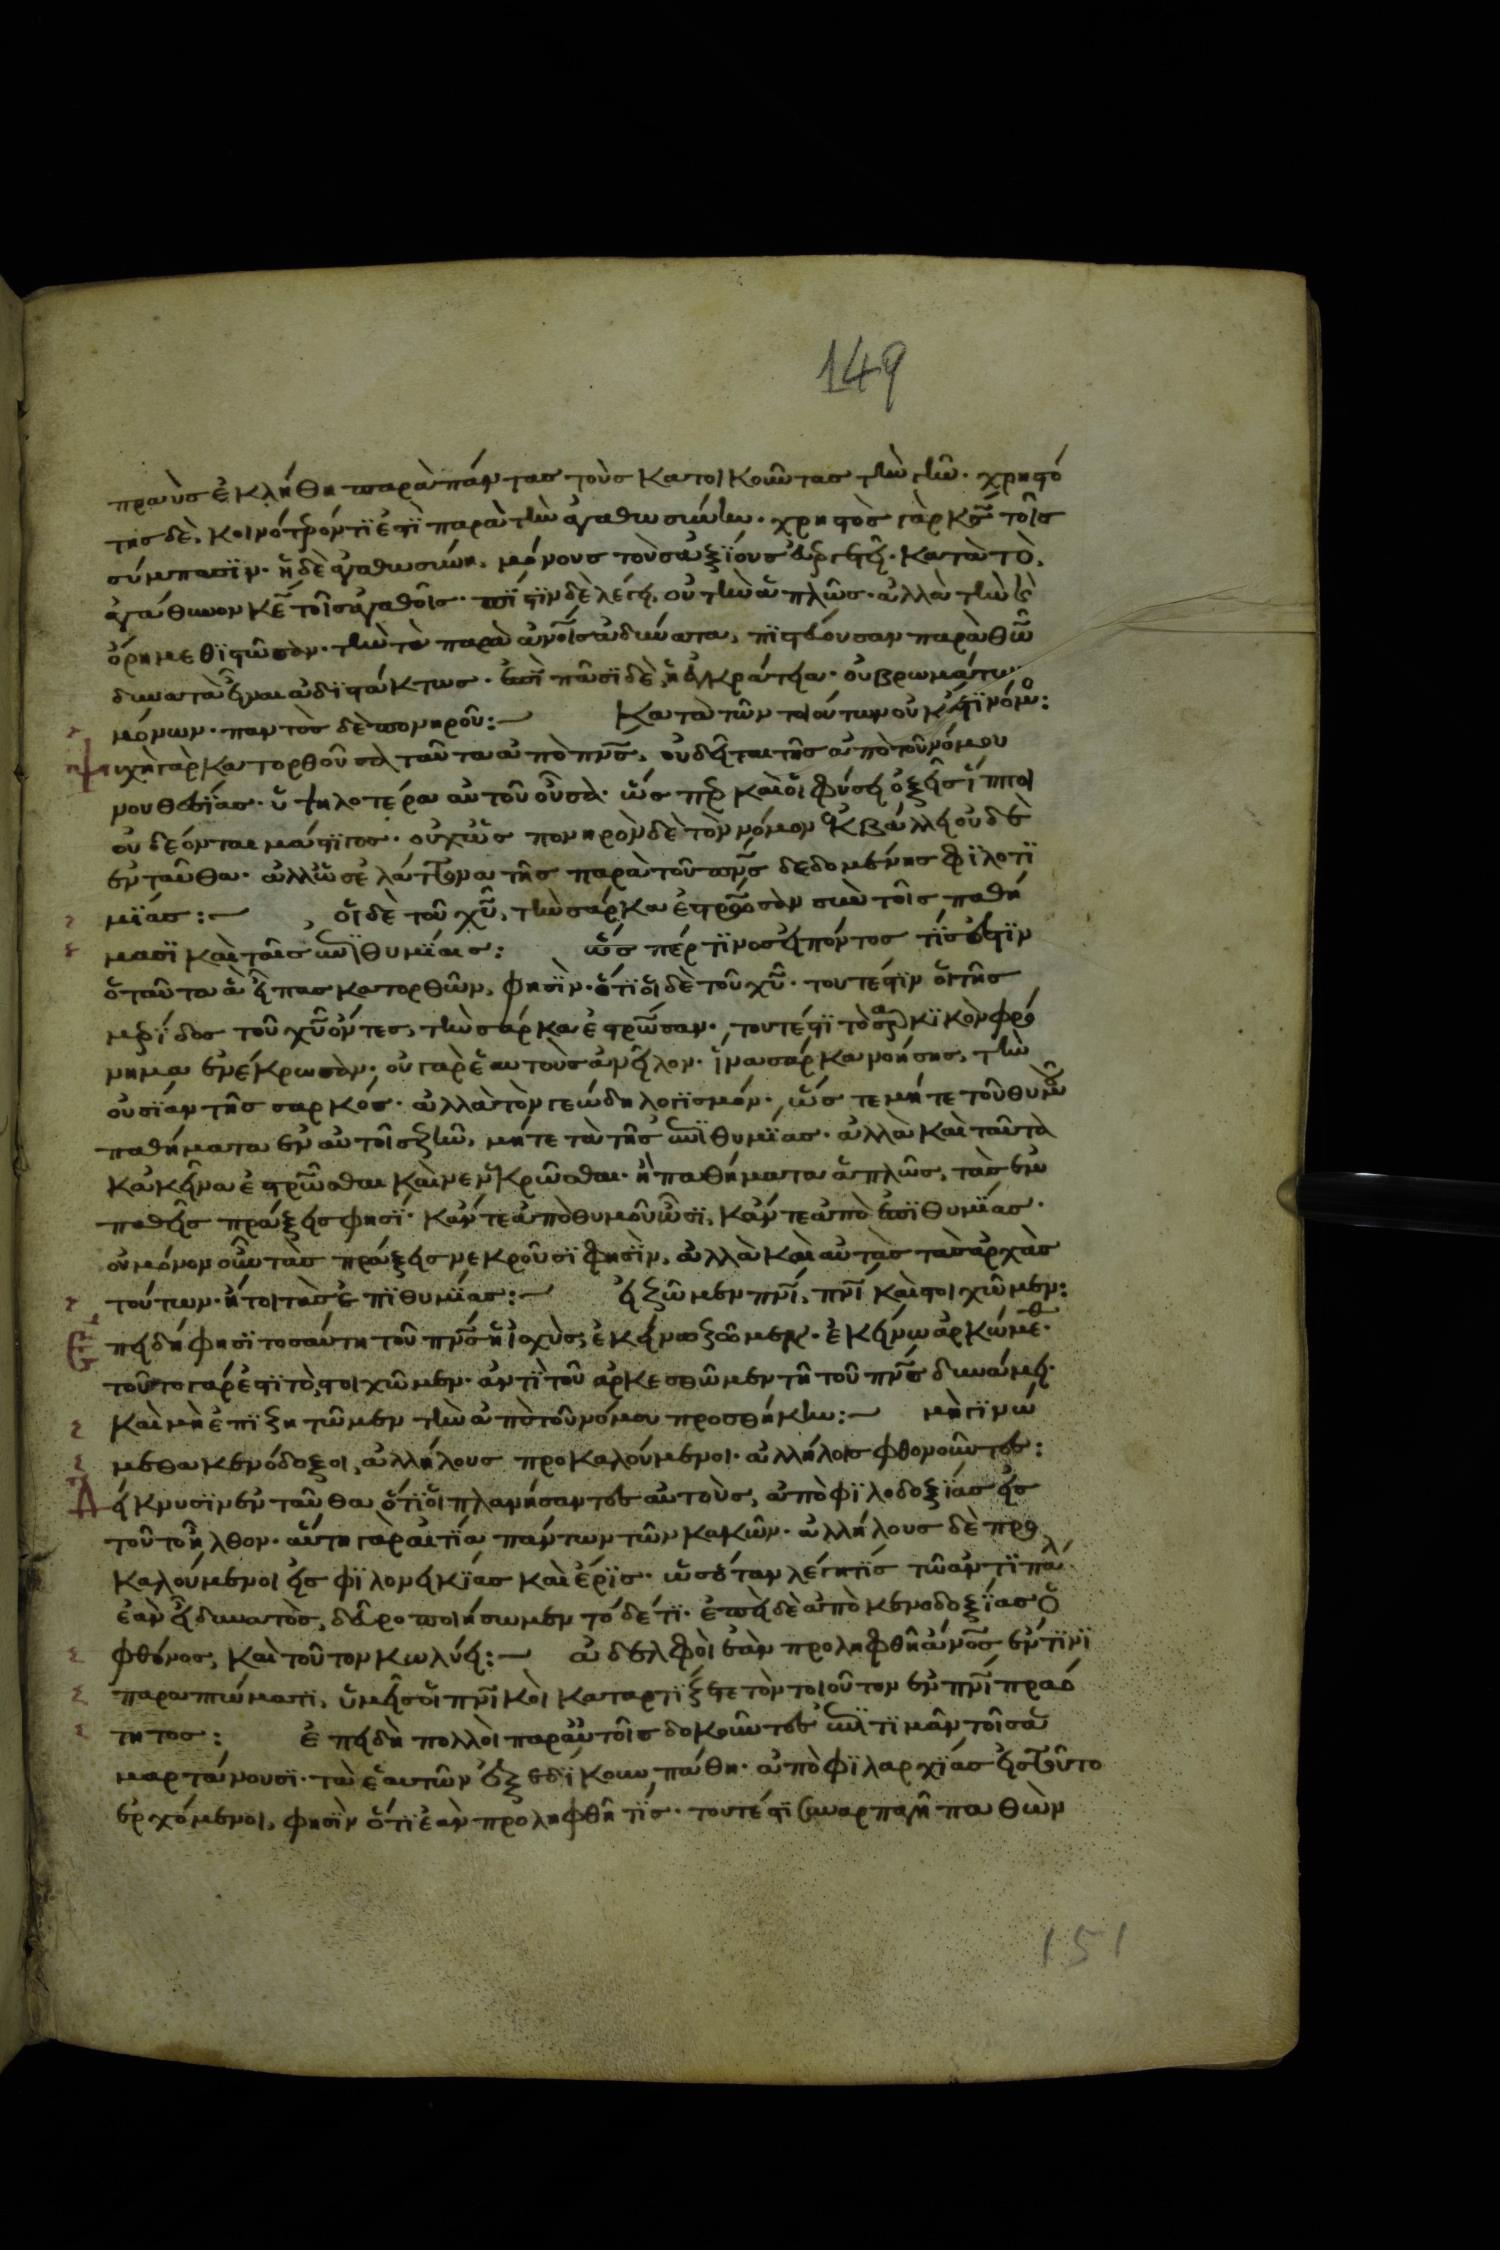 149
πραὺς ἐκλήθη παρὰ πάντας τοὺς κατοικοῦντας τὴν γῆν· χρηστό
της δὲ, κοινότερόν τι ἐστὶ παρὰ τὴν ἀγαθωσύνην· χρηστὸς γὰρ κς τοῖς
σύμπασιν· ἡ δὲ ἀγαθωσύνη, μόνους τοὺς ἀξίους· κατὰ τὸ,
ἀγάθυνον κε τοῖς ἀγαθοῖς· πίστιν δὲ λέγει, οὐ τὴν ἁπλῶς· ἀλλὰ τὴν
ὄρη μεθιστῶσαν· τὴν τὰ παρὰ ἀνοις ἀδύνατα, πιστεύουσαν παρὰ θω
δυνατὰ εἶναι ἀδιστάκτως· ἐπὶ πᾶσι δὲ, ἡ ἐγκράτεια· οὐ βρωμάτων
μόνων· παντὸς δὲ πονηροῦ:— κατὰ τῶν τοιούτων οὐκ ἔστι νόμος:
Ψυχὴ γὰρ κατορθοῦσα ταῦτα ἀπὸ πνς, οὐ δεῖται τῆς ἀπὸ τοῦ νόμου
νουθεσίας· ὑψηλοτέρα αὐτοῦ οὖσα· ὥς περ καὶ οἱ φύσει ὀξεῖς ἵπποι
οὐ δέονται μάστιγος· οὐχ ὡς πονηρὸν δὲ τὸν νόμον ἐκβάλλει οὐδὲ
ἐνταῦθα· ἀλλ' ὡς ἐλάττονα τῆς παρὰ τοῦ πνς δεδομένης φιλοτι
μίας:— οἱ δὲ τοῦ χυ, τὴν σάρκα ἐσταύρωσαν σὺν τοῖς παθή
μασι καὶ ταῖς ἐπιθυμίαις: ὥς πέρ τινος εἰπόντος τίς ἐστιν
ὁ ταῦτα ἃ εἶπας κατορθῶν, φησὶν· ὅτι οἱ δὲ τοῦ χυ· τουτέστιν οἱ τῆς
μερίδος τοῦ χυ ὄντες, τὴν σάρκα ἐσταύρωσαν· τουτέστι τὸ σαρκικὸν φρό
νημα ἐνέκρωσαν· οὐ γὰρ ἑαυτοὺς ἀνεῖλον· ἵνα σάρκα νοήσης, τὴν
οὐσίαν τῆς σαρκός· ἀλλὰ τὸν γεώδη λογισμόν· ὥς τε μήτε τοῦ θυμοῦ
παθήματα ἐν αὐτοῖς ζῆν, μήτε τὰ τῆς ἐπιθυμίας· ἀλλὰ καὶ ταῦτα
κἀκεῖνα ἐσταυρῶσθαι καὶ νενεκρῶσθαι· ἢ παθήματα ἁπλῶς, τὰς ἐμ
παθεῖς πράξεις φησί· κἄν τε ἀπὸ θυμοῦ ὦσι, κἄν τε ἀπὸ ἐπιθυμίας·
οὐ μόνον οὖν τὰς πράξεις νεκροῦσι φησὶν, ἀλλὰ καὶ αὐτὰς τὰς ἀρχὰς
τούτων· ἤτοι τὰς ἐπιθυμίας:— εἰ ζῶμεν πνι, πνι καὶ στοιχῶμεν:
Ἐπειδή φησι τοσαύτη τοῦ πνς ἡ ἰσχὺς, ἐκείνω ζῶμεν· ἐκείνω ἀρκώμεθα·
τοῦτο γάρ ἐστι τὸ, στοιχῶμεν· ἀντὶ τοῦ ἀρκεσθῶμεν τῆ τοῦ πνς δυνάμει·
καὶ μὴ ἐπιζητῶμεν τὴν ἀπὸ τοῦ νόμου προσθήκην:— μὴ γινώ
μεθα κενόδοξοι, ἀλλήλους προκαλούμενοι· ἀλλήλοις φθονοῦντες:
Δείκνυσιν ἐνταῦθα ὅτι οἱ πλανήσαντες αὐτοὺς, ἀπὸ φιλοδοξίας εἰς
τοῦτο ἦλθον· αὕτη γὰρ αἰτία πάντων τῶν κακῶν· ἀλλήλους δὲ προ
καλούμενοι εἰς φιλονεικίας καὶ ἔρις· ὡς ὅταν λέγη τίς τῶ ἀντιπάλω·
ἐὰν ἦ δυνατὸς, δεῦρο ποιήσωμεν τόδέ τι· ἐπεὶ δὲ ἀπὸ κενοδοξίας ὁ
φθόνος, καὶ τοῦτον κωλύει:— ἀδελφοὶ ἐὰν προληφθῆ ἀνος ἔν τινι
παραπτώματι, ὑμεῖς οἱ πνικοὶ καταρτίζετε τὸν τοιοῦτον ἐν πνι πραό
τητος: ἐπειδὴ πολλοὶ παρ' αὐτοῖς δοκοῦντες ἐπιτιμᾶν τοῖς ἁ
μαρτάνουσι· τὰ ἑαυτῶν ἐξεδίκουν πάθη· ἀπὸ φιλαρχίας εἰς τοῦτο
ἐρχόμενοι, φησὶν ὅτι ἐὰν προληφθῆ τίς· τουτέστι συναρπαγῆ παθὼν
151